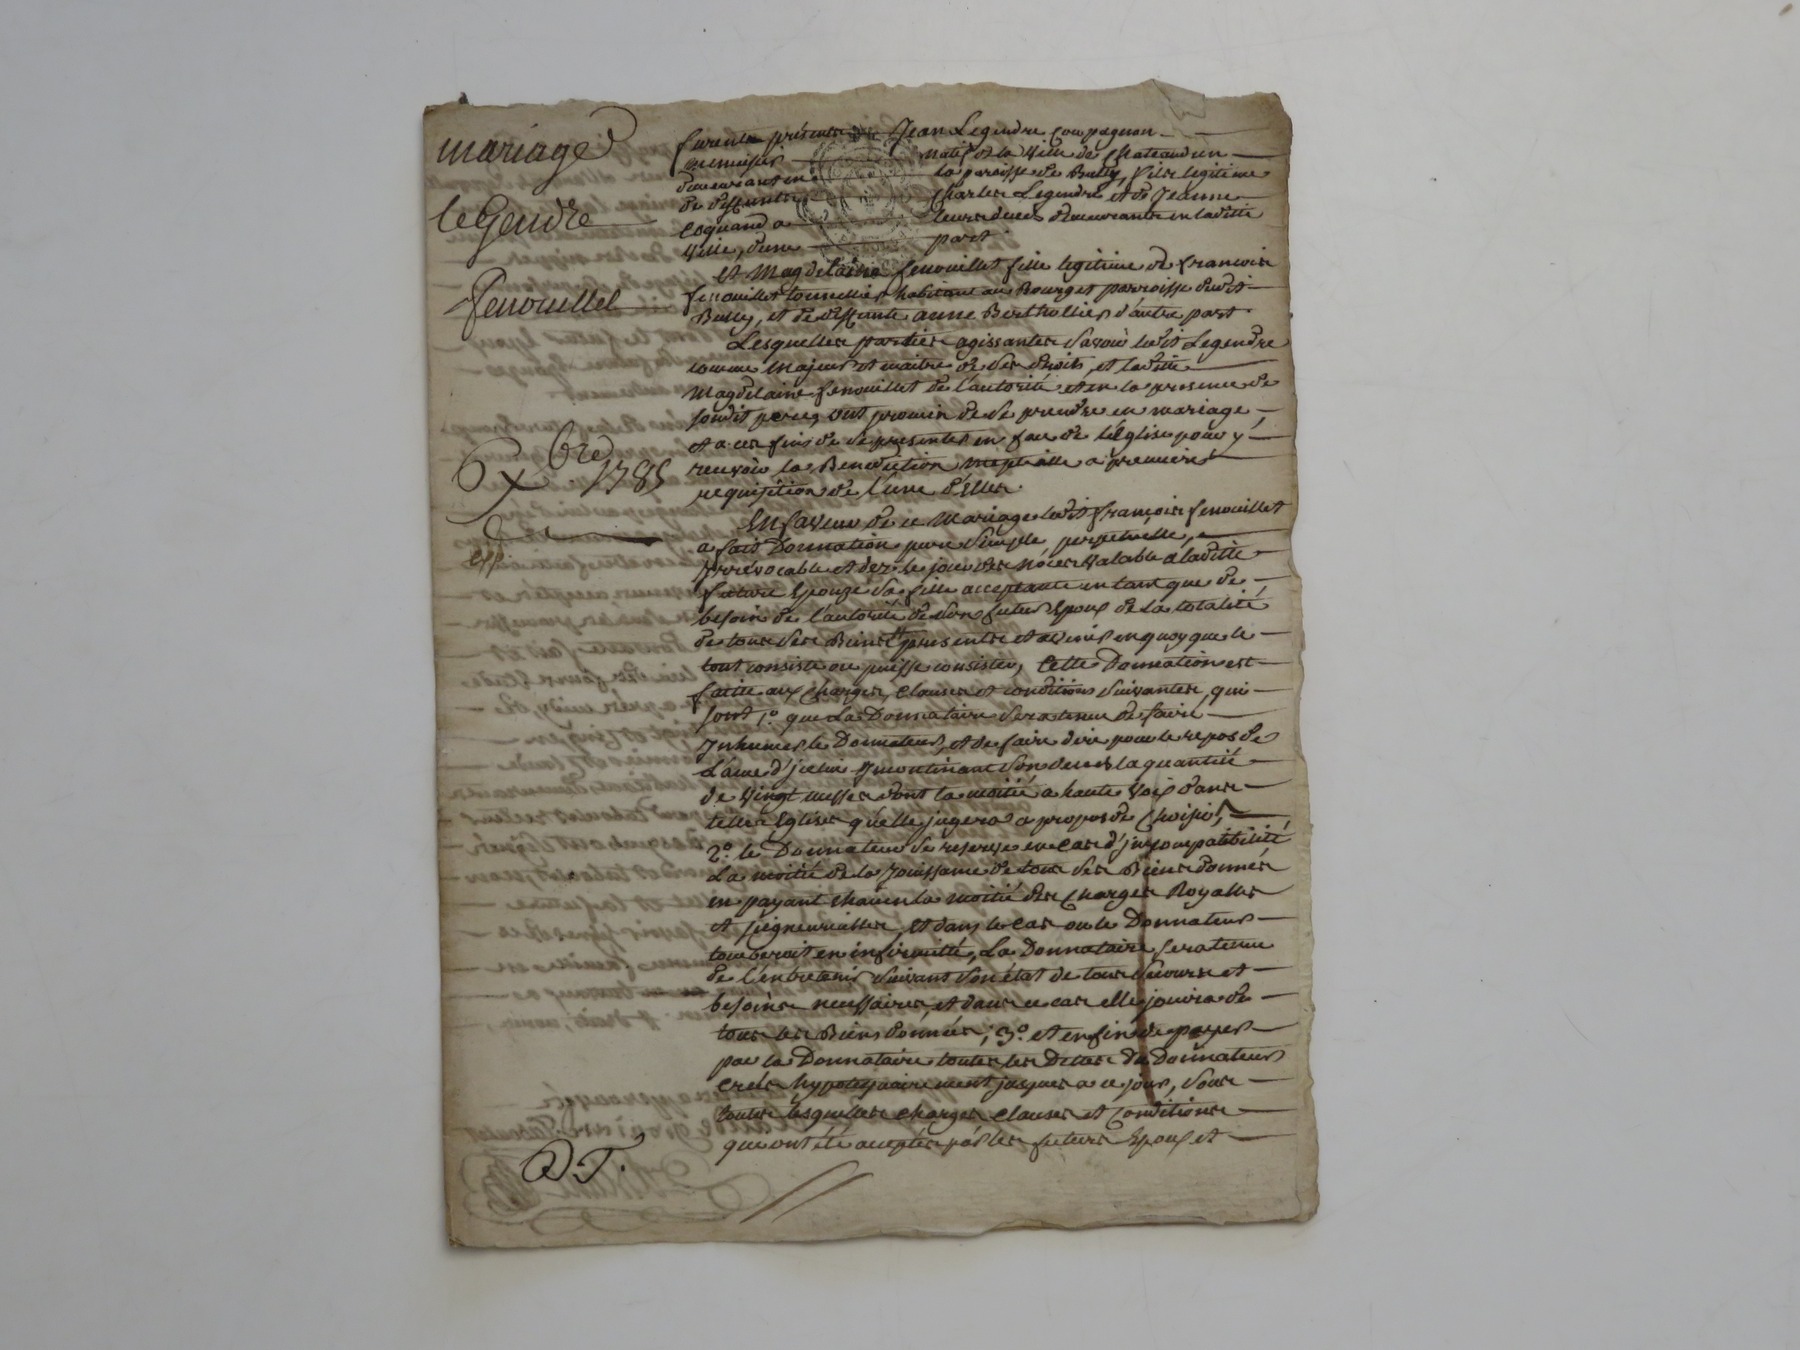 mariage
leGendre
fenouillet
6 Xbre 1785
exp.
furent présents Jean Legendre Compagnon
menuisier natif de la Ville de Chateaudun
demeurant en la paroisse de Bully, fils legitime
de deffunts Charles Legendre et de Jeanne
Coquand a leurs deces demeurants en laditte
Ville, d'une part
Et Magdelaine fenouillet fille legitime de francois
fenouillet tonnellier habitant au Bourg et parroisse dudit
Bully, et de deffunte anne Berthollier d'autre part
Lesquelles parties agissantes savoir ledit Legendre
comme Majeur et maitre de ses droits, et laditte
Magdelaine fenouillet de l'autorité et en la presence de
sondit pere, ont promis de se prendre en mariage,
et a ces fins de se presenter en face de l'église pour y
recevoir la Benediction nuptialle a premiere
requisition de l'une d'elles
En faveur de ce Mariage ledit françois fenouillet
a fait Donnation pure simple perpetuelle,
Irrévocable et dez le jour des Nôces Valable a laditte
future Epouze sa fille acceptante en tant que de
besoin de l'autorité de son futur Epoux de la totalité
de tous ses Biens presents et avenir en quoy que le
tout consiste ou puisse consister, Cette Donnation est
faitte aux Charges, Clauses et conditions suivantes, qui
sont 1.° que La Donnataire sera tenue de faire
Inhumer le Donnateur, et de faire dire pour le repos de
L'ame d'jcelui Jncontinant son deces la quantité
de Vingt messes dont la moitié a haute Voix dans
telles Eglises qu'elle jugera a propos de Choisir,
2.° le Donnateur se reserve en cas d'jncompatibilité
La moitié de la Jouissance de tous ses Biens donnés
en payant chacun la moitié des Charges Royalles
et seigneurialles, et dans le cas ou le Donnateur
tomberoit en infirmitté, La Donnataire sera tenue
de l'entretenir suivant son état de tous secours et
besoins necessaires, et dans ce cas elle jouira de
tous les Biens donnés; 3.° et enfin de payer
par la Donnataire toutes les Dettes du Donnateur
créés hypotequairement jusques a ce jour, sous
toutes lesquelles charges clauses et Conditions
que ont été acceptés par les futurs Epoux et
D. T.